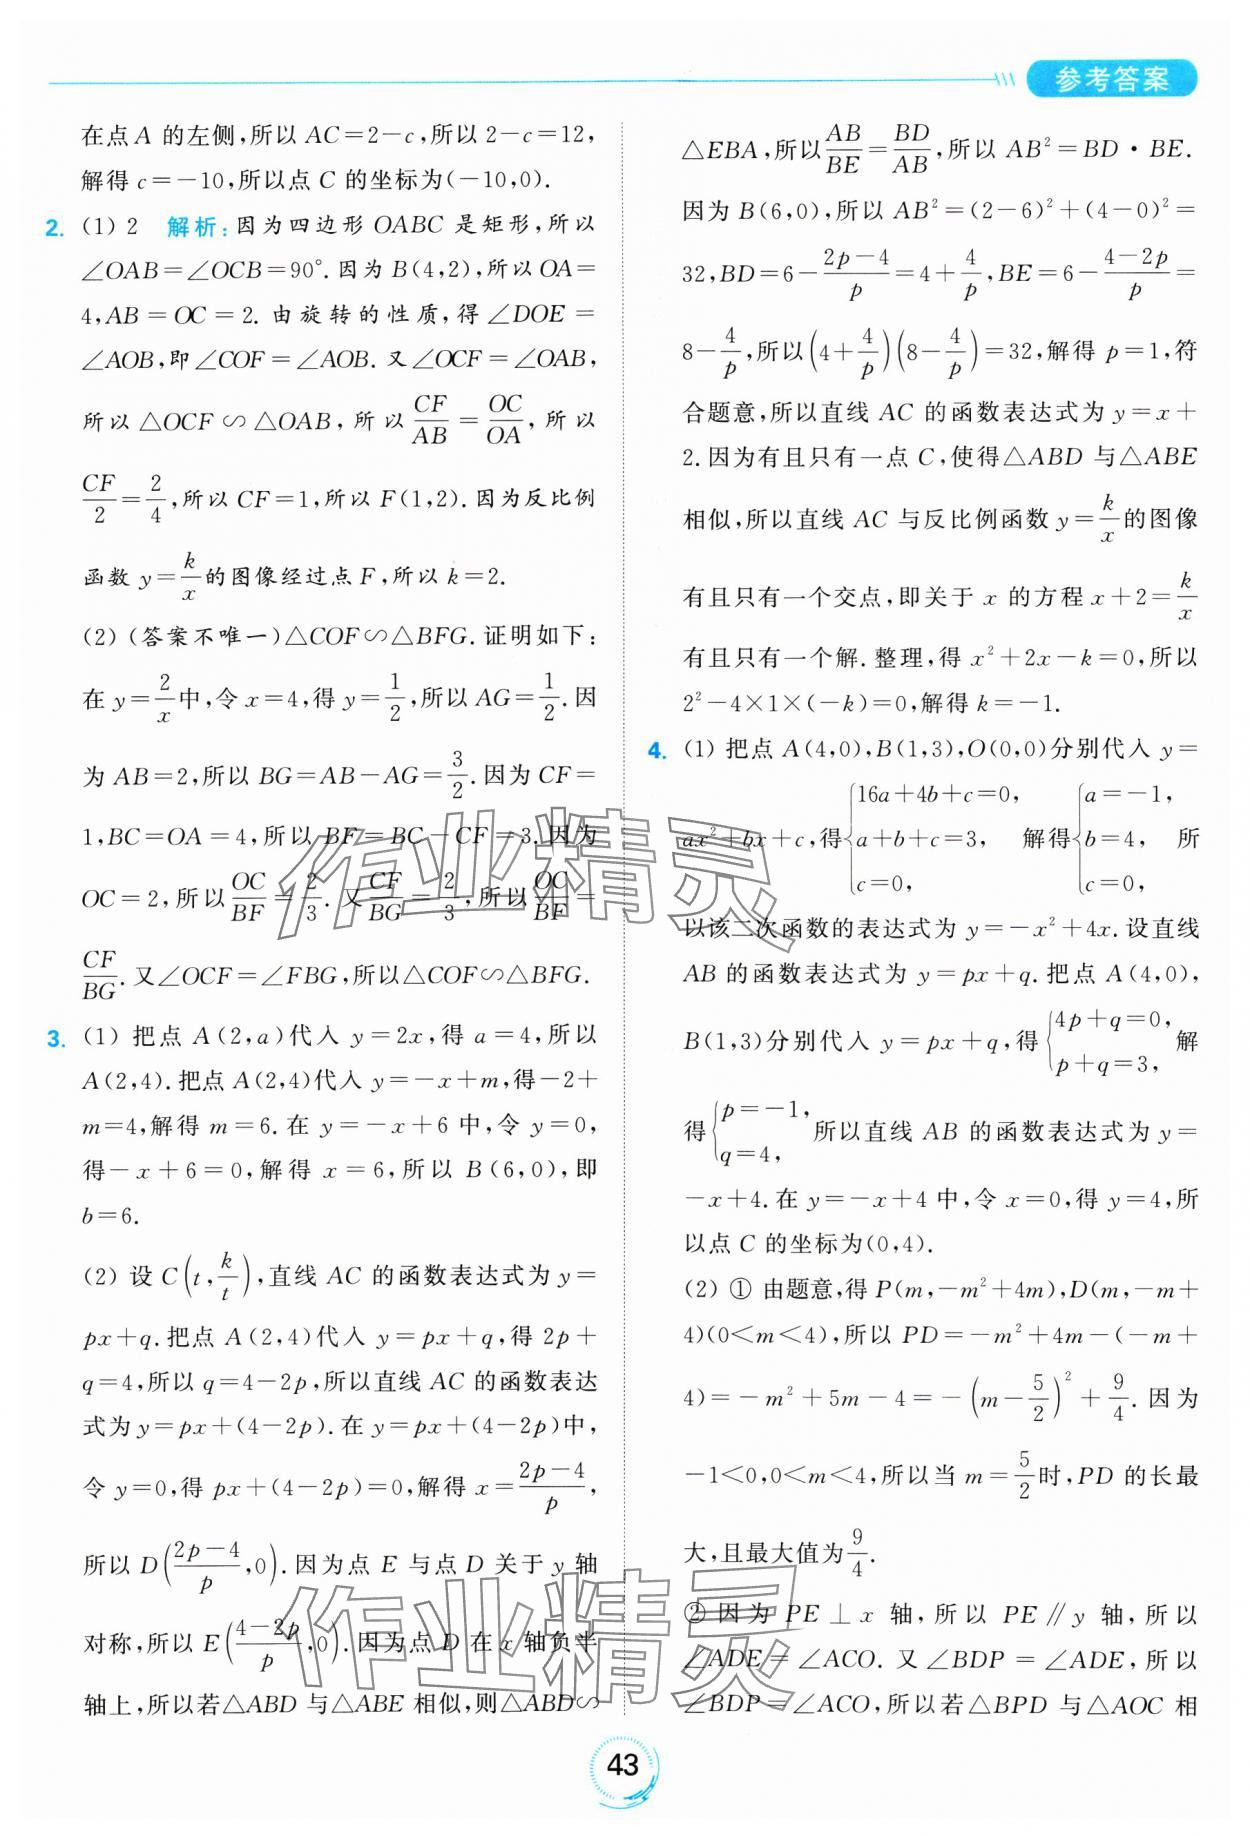 参考答案
在点A 的左侧,所以 AC=2-c,所以 2-c=12,
解得 c=-10,所以点 C 的坐标为(-10,0).
2. (1) 2 解析:因为四边形 OABC 是矩形,所以
∠OAB=∠OCB=90°.因为 B(4,2),所以 OA=
4,AB=OC=2.由旋转的性质,得∠DOE=
∠AOB,即∠COF=∠AOB.又∠OCF=∠OAB,
所以△OCF∽△OAB,所以 CF/AB=OC/OA,所以
CF/2=2/4,所以 CF=1,所以 F(1,2).因为反比例
函数 y=k/x的图像经过点 F,所以 k=2.
(2) (答案不唯一)△COF∽△BFG.证明如下:
在 y=2/x中,令 x=4,得 y=1/2,所以 AG=1/2.因
为 AB=2,所以 BG=AB-AG=3/2.因为 CF=
1,BC=OA=4,所以 BF=BC-CF=3.因为
OC=2,所以OC/BF=2/3.又CF/BG=2/3,所以OC/BF=
CF/BG.又∠OCF=∠FBG,所以△COF∽△BFG.
3. (1) 把点 A(2,a)代入 y=2x,得 a=4,所以
A(2,4).把点 A(2,4)代入 y=-x+m,得-2+
m=4,解得 m=6.在 y=-x+6 中,令 y=0,
得-x+6=0,解得 x=6,所以 B(6,0),即
b=6.
(2) 设 C(t,k/t),直线 AC 的函数表达式为 y=
px+q.把点 A(2,4)代入 y=px+q,得 2p+
q=4,所以 q=4-2p,所以直线 AC 的函数表达
式为 y=px+(4-2p).在 y=px+(4-2p)中,
令 y=0,得 px+(4-2p)=0,解得 x=(2p-4)/p,
所以 D((2p-4)/p,0).因为点 E 与点 D 关于 y 轴
对称,所以 E((4-2p)/p,0).因为点 D 在 x 轴负半
轴上,所以若△ABD 与△ABE 相似,则△ABD∽
△EBA,所以AB/BE=BD/AB,所以 AB²=BD·BE.
因为 B(6,0),所以 AB²=(2-6)²+(4-0)²=
32,BD=6-(2p-4)/p=4+4/p,BE=6-(4-2p)/p=
8-4/p,所以(4+4/p)(8-4/p)=32,解得 p=1,符
合题意,所以直线 AC 的函数表达式为 y=x+
2.因为有且只有一点 C,使得△ABD 与△ABE
相似,所以直线 AC 与反比例函数 y=k/x的图像
有且只有一个交点,即关于 x 的方程 x+2=k/x
有且只有一个解.整理,得 x²+2x-k=0,所以
2²-4×1×(-k)=0,解得 k=-1.
4. (1) 把点 A(4,0),B(1,3),O(0,0)分别代入 y=
ax²+bx+c,得{16a+4b+c=0, a+b+c=3, c=0, 解得{a=-1, b=4, c=0, 所
以该二次函数的表达式为 y=-x²+4x.设直线
AB 的函数表达式为 y=px+q.把点 A(4,0),
B(1,3)分别代入 y=px+q,得{4p+q=0, p+q=3, 解
得{p=-1, q=4, 所以直线 AB 的函数表达式为 y=
-x+4.在 y=-x+4 中,令 x=0,得 y=4,所
以点 C 的坐标为(0,4).
(2) ① 由题意,得 P(m,-m²+4m),D(m,-m+
4)(0<m<4),所以 PD=-m²+4m-(-m+
4)=-m²+5m-4=-(m-5/2)²+9/4.因为
-1<0,0<m<4,所以当 m=5/2时,PD 的长最
大,且最大值为9/4.
② 因为 PE⊥x 轴,所以 PE∥y 轴,所以
∠ADE=∠ACO.又∠BDP=∠ADE,所以
∠BDP=∠ACO,所以若△BPD 与△AOC 相
作业精灵
作业精灵
43